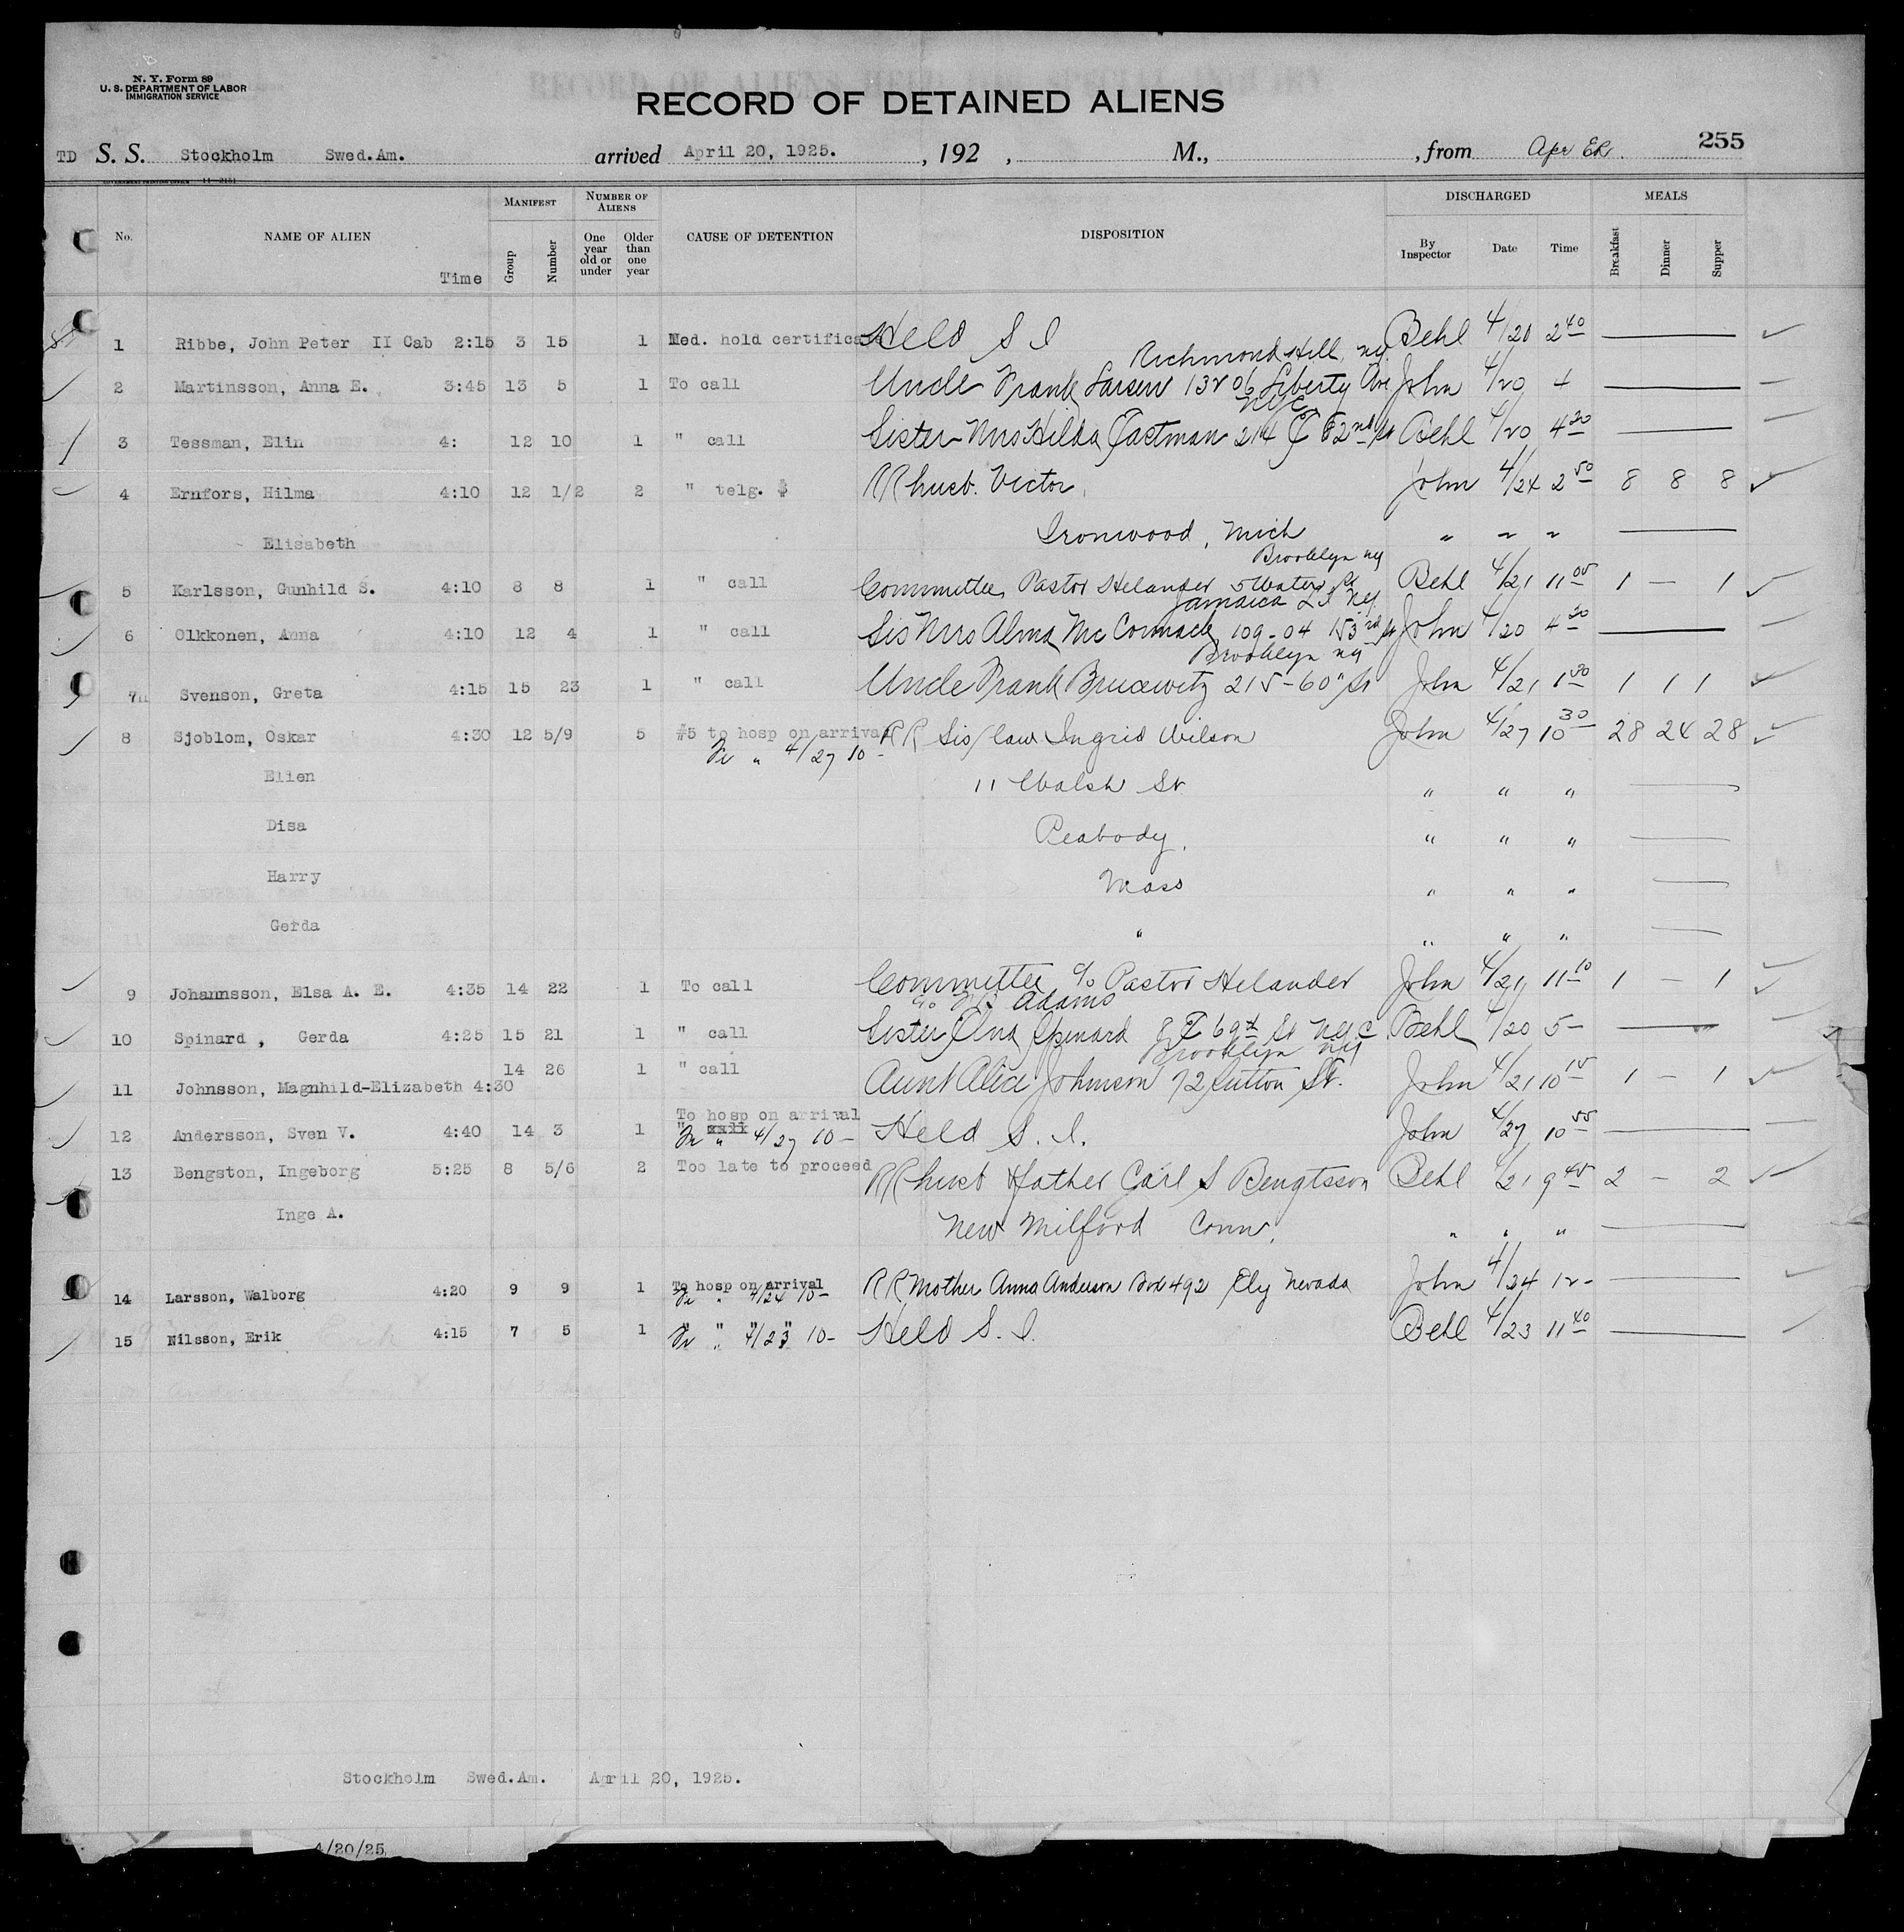 N. Y. Form 89
U. S. DEPARTMENT OF LABOR
IMMIGRATION SERVICE
RECORD OF DETAINED ALIENS
255
TD S. S. Stockholm Swed.Am. arrived April 20, 1925. , 192 , M., , from
GOVERNMENT PRINTING OFFICE 11-2151
No. NAME OF ALIEN Time MANIFEST Group Number NUMBER OF ALIENS One year old or under Older than one year CAUSE OF DETENTION DISPOSITION DISCHARGED By Inspector Date Time MEALS Breakfast Dinner Supper
1 Ribbe, John Peter II Cab 2:15 3 15 1 Med. hold certificate Held S I Behl 4/20 2 40
Richmond Hill, ny.
2 Martinsson, Anna E. 3:45 13 5 1 To call Uncle Frank Larsen 132 06 Liberty Ave John 4/20 4
NYC
3 Tessman, Elin 4: 12 10 1 " call Sister Mrs Hilda Eastman 214 E 62nd St Behl 4/20 4 20
4 Ernfors, Hilma 4:10 12 1/2 2 " telg. $ RR husb. Victor, John 4/24 2 50 8 8 8
Elisabeth Ironwood, Mich " " "
Brooklyn ny
5 Karlsson, Gunhild S. 4:10 8 8 1 " call Committee, Pastor Helander 5 Water St Behl 4/21 11 05 1 — 1
Jamaica L I ny.
6 Olkkonen, Anna 4:10 12 4 1 " call Sis Mrs Alma Mc Cormack, 109-04 153rd St John 4/20 4 30
Brooklyn ny
7 Svenson, Greta 4:15 15 23 1 " call Uncle Frank Brucewitz 215-60" St John 4/21 1 30 1 1 1
8 Sjoblom, Oskar 4:30 12 5/9 5 #5 to hosp on arrival RR Sis/law Ingrid Wilson John 4/27 10 30 28 24 28
Fr " 4/27 10-
Elien 11 Walsh St " " "
Disa Peabody, " " "
Harry Mass " " "
Gerda " " " "
9 Johannsson, Elsa A. E. 4:35 14 22 1 To call Committee c/o Pastor Helander John 4/21 11 10 1 — 1
Adams
10 Spinard , Gerda 4:25 15 21 1 " call Sister Elna Spinard 8 E 69th St NY.C. Behl 4/20 5-
Brooklyn ny
11 Johnsson, Magnhild-Elizabeth 4:30 14 26 1 " call Aunt Alice Johnson 72 Sutton St. John 4/21 10 15 1 — 1
To hosp on arrival
12 Andersson, Sven V. 4:40 14 3 1 " call Held S. I. John 4/27 10 55
Fr " 4/27 10-
13 Bengston, Ingeborg 5:25 8 5/6 2 Too late to proceed RR husb & father Carl S Bengtsson Behl 4/21 9 45 2 — 2
Inge A. New Milford Conn, " " "
14 Larsson, Walborg 4:20 9 9 1 To hosp on arrival RR Mother Anna Anderson Box 492 Ely Nevada John 4/24 12-
Fr " 4/24 10-
15 Nilsson, Erik 4:15 7 5 1 " " " " Held S. I. Behl 4/23 11 40
Fr " 4/23 10-
Stockholm Swed.Am. April 20, 1925.
4/20/25